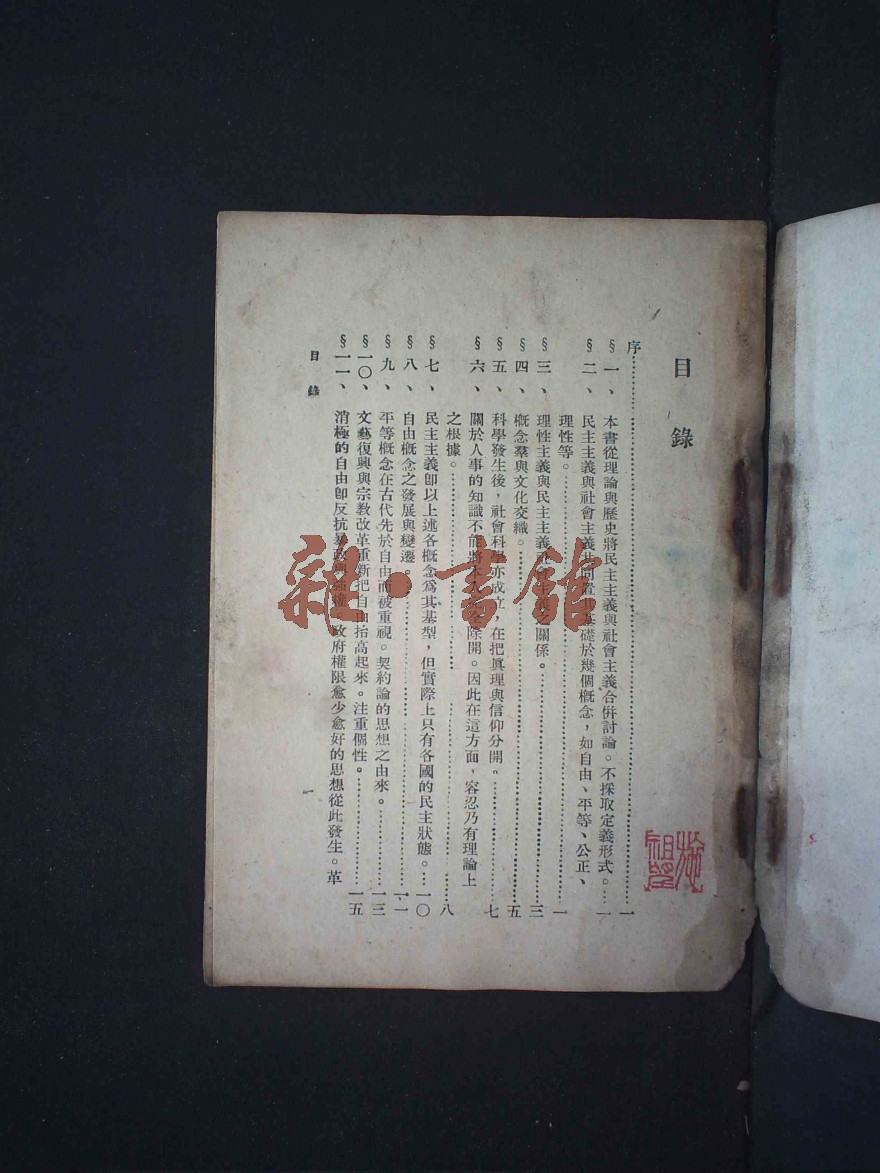 目錄
序……一
§一、本書從理論與歷史將民主主義與社會主義合併討論。不採取定義形式。…一
§二、民主主義與社會主義共同置其基礎於幾個概念，如自由、平等、公正、
理性等。……一
§三、理性主義與民主主義社會主義之關係。……三
§四、概念羣與文化交織。……五
§五、科學發生後，社會科學亦成立，在把眞理與信仰分開。……七
§六、關於人事的知識不能將本人完全除開。因此在這方面，容忍乃有理論上
之根據。……八
§七、民主主義卽以上述各概念爲其基型，但實際上只有各國的民主狀態。…一〇
§八、自由概念之發展與變遷。……一一
§九、平等概念在古代先於自由而被重視。契約論的思想之由來。……一三
§一〇、文藝復興與宗教改革重新把自由抬高起來。注重個性。……一五
§一一、消極的自由卽反抗。政府權限愈少愈好的思想從此發生。革
目錄
一
雜·書館